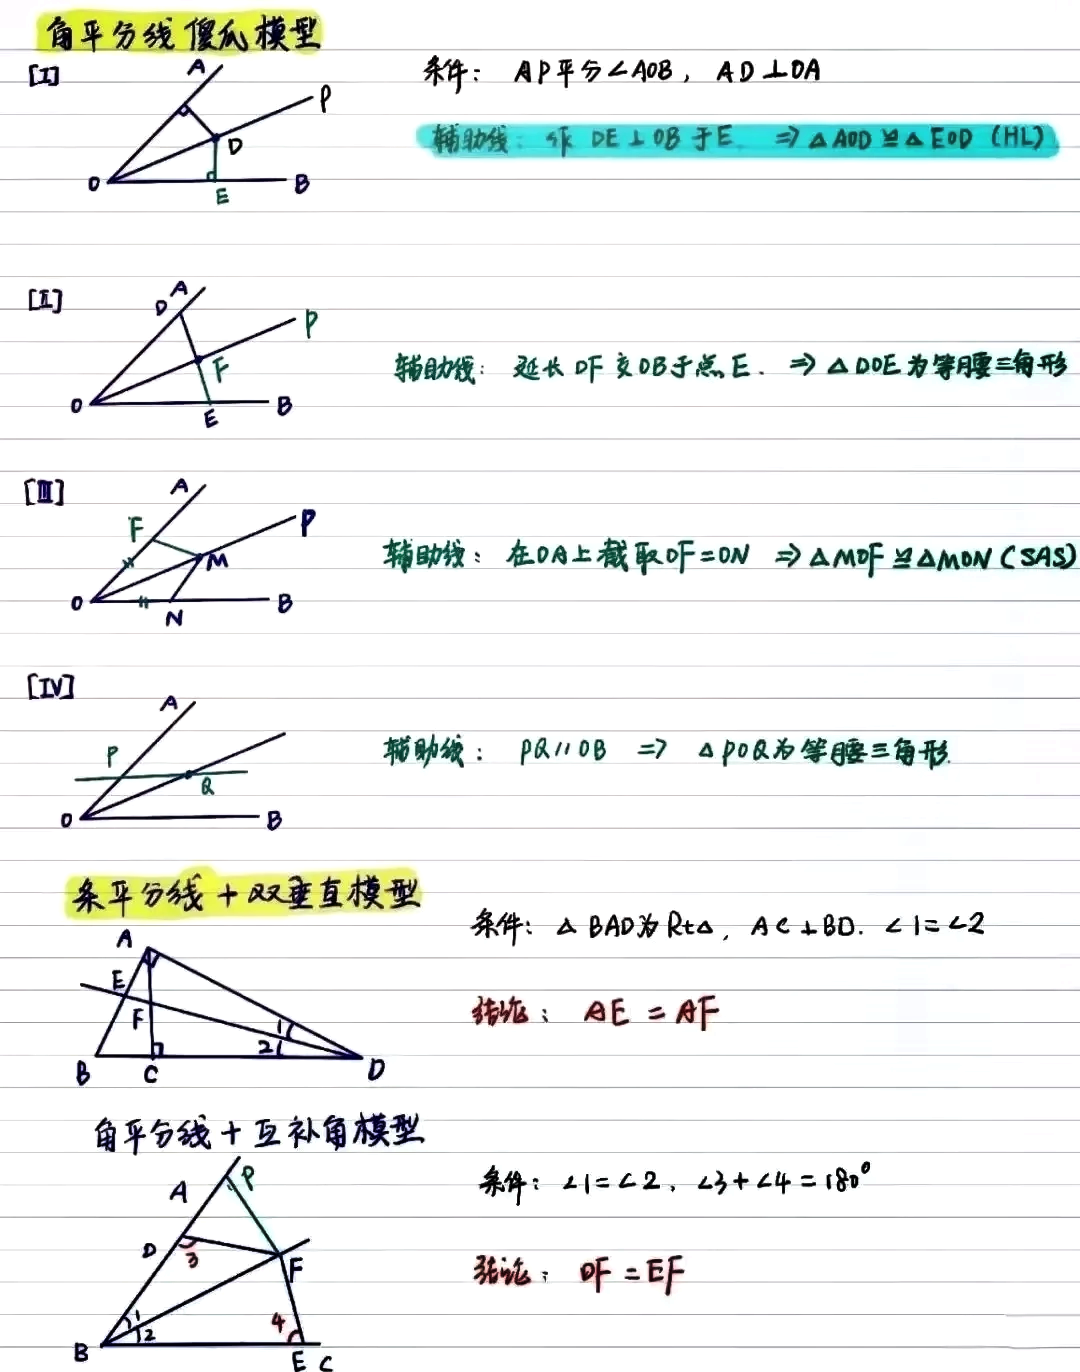 角平分线傻瓜模型
[I]
A
P
D
O
E
B
条件: AP平分∠AOB, AD⊥OA
辅助线: 作 DE⊥OB于E. ⇒△AOD≌△EOD (HL)
[II]
A
D
P
F
O
E
B
辅助线: 延长DF交OB于点E. ⇒△DOE为等腰三角形
[III]
A
F
P
M
O
N
B
辅助线: 在OA上截取OF=ON ⇒△MOF≌△MON(SAS)
[IV]
A
P
Q
O
B
辅助线: PQ//OB ⇒ △POQ为等腰三角形.
条平分线+双垂直模型
A
E
F
1
2
B
C
D
条件: △BAD为Rt△, AC⊥BD. ∠1=∠2
结论: AE=AF
角平分线+互补角模型
A
P
D
3
F
1
2
4
B
E
C
条件: ∠1=∠2, ∠3+∠4=180°
结论: DF=EF